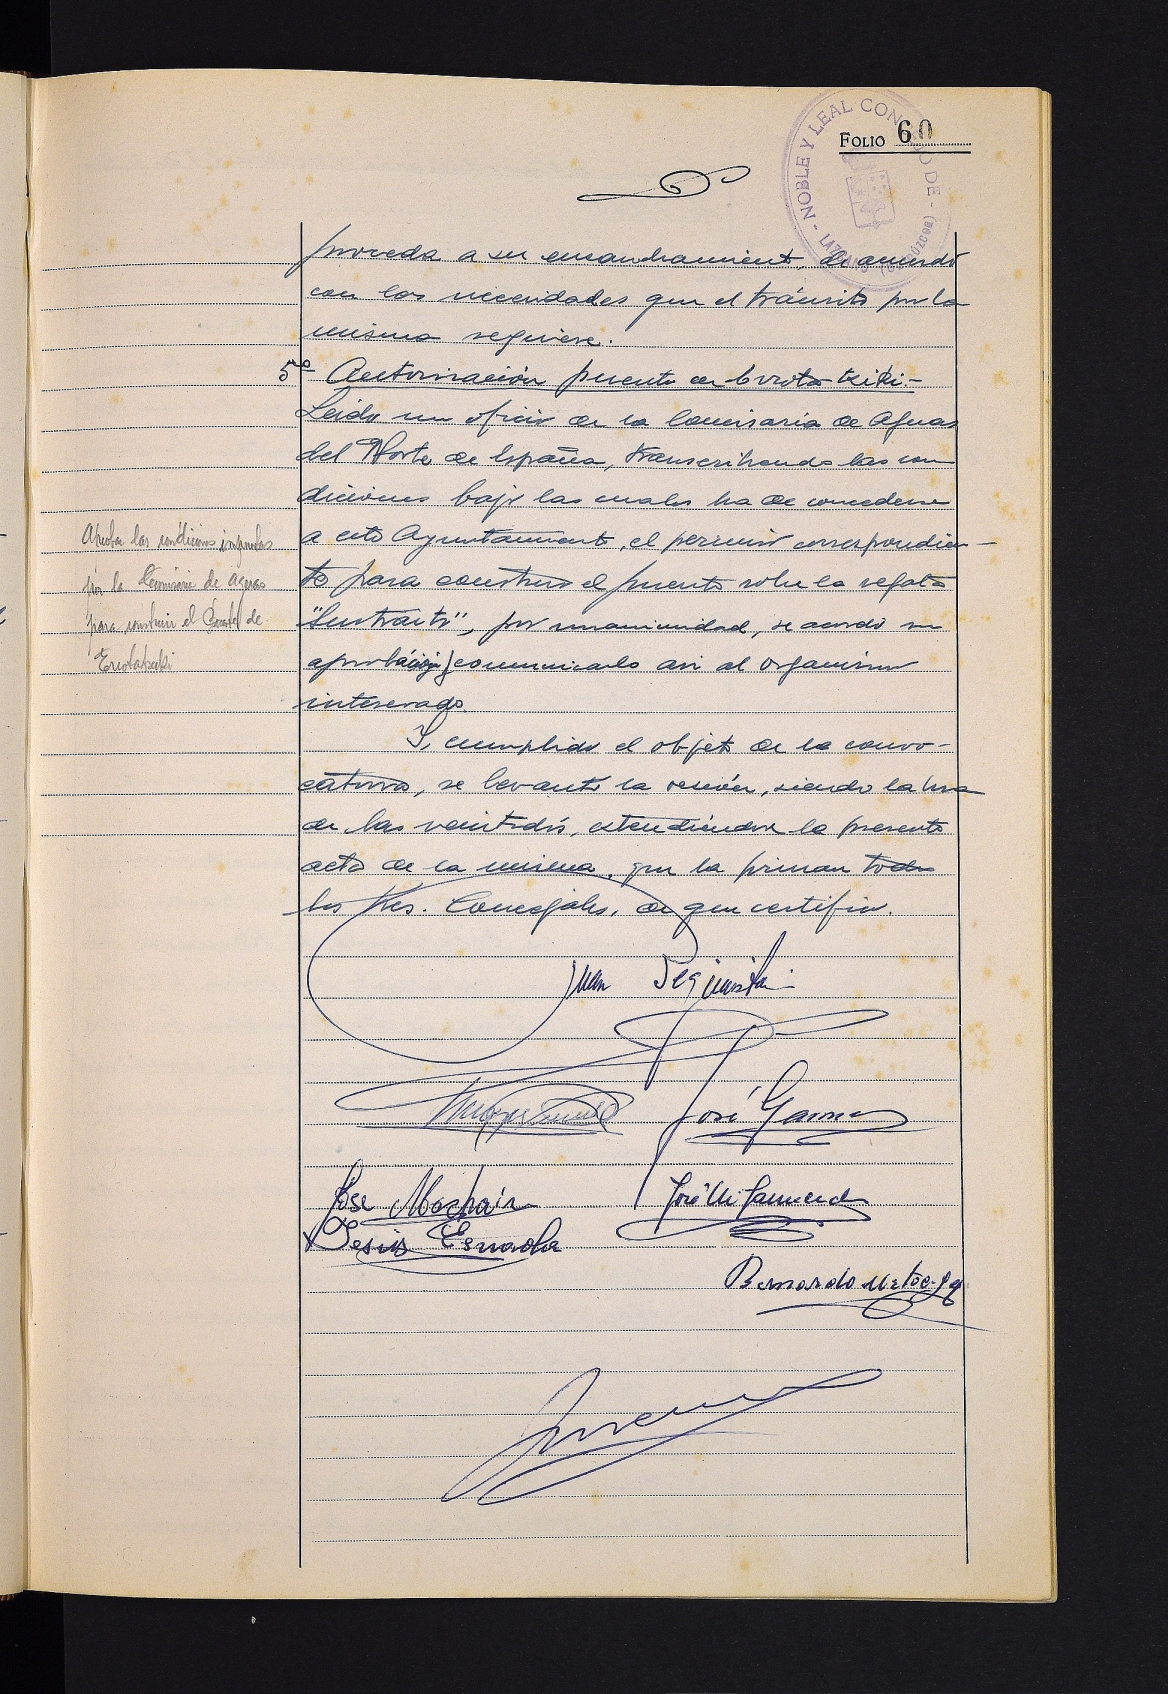 NOBLE Y LEAL CONCEJO DE - LAZCANO (GUIPÚZCOA) -
FOLIO 60
proceda a su ensanchamiento, de acuerdo
con las necesidades que el tránsito por la
misma requiere.
5º Autorización puente de Errotatxiki.-
Leído un oficio de la Comisaría de Aguas
del Norte de España, transcribiendo las con
diciones bajo las cuales ha de concederse
a este Ayuntamiento, el permiso correspondien-
te para construir el puente sobre la regata
por unanimidad, se acordó su
aprobación y comunicarlo así al organismo
interesado.
Y, cumplido el objeto de la convo-
catoria, se levantó la sesión, siendo la hora
de las veintidós, extendiéndose la presente
acta de la misma, que la firman todos
los Sres. Concejales, de que certifico.
Aprobar las condiciones impuestas
por la Comisaría de Aguas
para construir el Puente de
Errotatxiki
Juan
José
José
Jesús
José M.
Bernardo